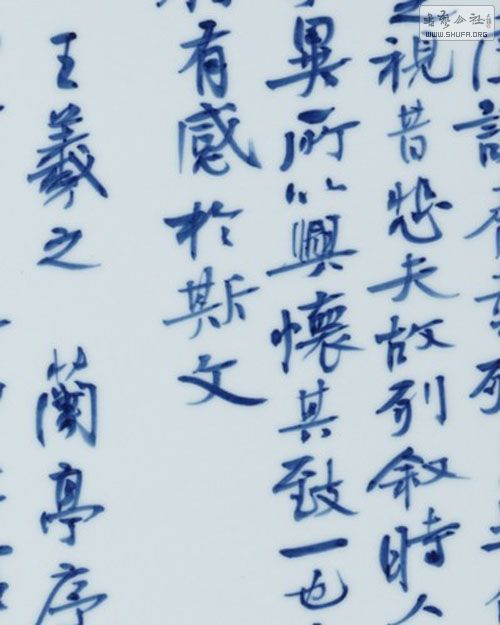 視昔悲夫故列叙時人
異所以興懷其致一也
有感於斯文
王羲之 蘭亭序
書藝公社
WWW.SHUFA.ORG